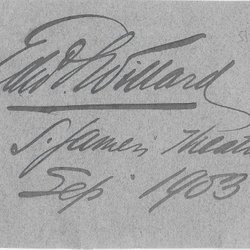 Edw. S. Willard
St. James's Theatre
Sep: 1903